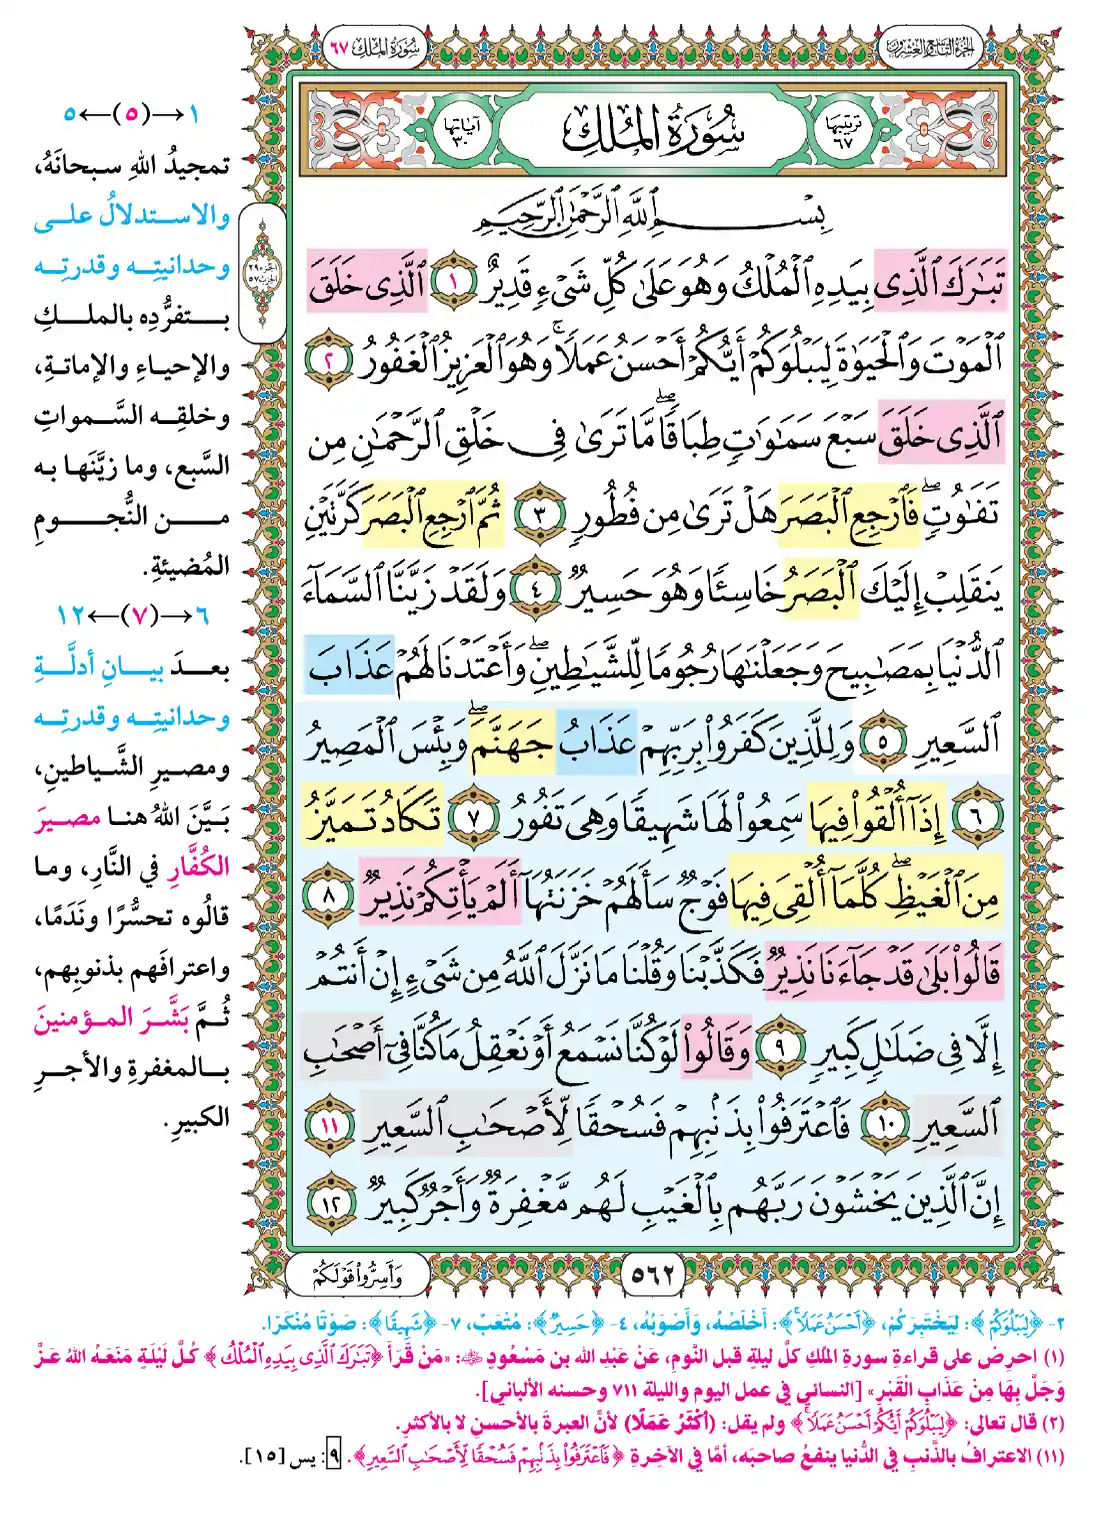 الجزء التاسع والعشرون
سُورَةُ المُلك ٦٧
ترتيبها ٦٧
سُورَةُ المُلكِ
آياتها ٣٠
بِسْمِ اللَّهِ الرَّحْمَٰنِ الرَّحِيمِ
تَبَٰرَكَ ٱلَّذِى بِيَدِهِ ٱلْمُلْكُ وَهُوَ عَلَىٰ كُلِّ شَىْءٍ قَدِيرٌ ١ ٱلَّذِى خَلَقَ
ٱلْمَوْتَ وَٱلْحَيَوٰةَ لِيَبْلُوَكُمْ أَيُّكُمْ أَحْسَنُ عَمَلًا ۚ وَهُوَ ٱلْعَزِيزُ ٱلْغَفُورُ ٢
ٱلَّذِى خَلَقَ سَبْعَ سَمَٰوَٰتٍ طِبَاقًا ۖ مَّا تَرَىٰ فِى خَلْقِ ٱلرَّحْمَٰنِ مِن
تَفَٰوُتٍ ۖ فَٱرْجِعِ ٱلْبَصَرَ هَلْ تَرَىٰ مِن فُطُورٍ ٣ ثُمَّ ٱرْجِعِ ٱلْبَصَرَ كَرَّتَيْنِ
يَنقَلِبْ إِلَيْكَ ٱلْبَصَرُ خَاسِئًا وَهُوَ حَسِيرٌ ٤ وَلَقَدْ زَيَّنَّا ٱلسَّمَآءَ
ٱلدُّنْيَا بِمَصَٰبِيحَ وَجَعَلْنَٰهَا رُجُومًا لِّلشَّيَٰطِينِ ۖ وَأَعْتَدْنَا لَهُمْ عَذَابَ
ٱلسَّعِيرِ ٥ وَلِلَّذِينَ كَفَرُوا۟ بِرَبِّهِمْ عَذَابُ جَهَنَّمَ ۖ وَبِئْسَ ٱلْمَصِيرُ
٦ إِذَآ أُلْقُوا۟ فِيهَا سَمِعُوا۟ لَهَا شَهِيقًا وَهِىَ تَفُورُ ٧ تَكَادُ تَمَيَّزُ
مِنَ ٱلْغَيْظِ ۖ كُلَّمَآ أُلْقِىَ فِيهَا فَوْجٌ سَأَلَهُمْ خَزَنَتُهَآ أَلَمْ يَأْتِكُمْ نَذِيرٌ ٨
قَالُوا۟ بَلَىٰ قَدْ جَآءَنَا نَذِيرٌ فَكَذَّبْنَا وَقُلْنَا مَا نَزَّلَ ٱللَّهُ مِن شَىْءٍ إِنْ أَنتُمْ
إِلَّا فِى ضَلَٰلٍ كَبِيرٍ ٩ وَقَالُوا۟ لَوْ كُنَّا نَسْمَعُ أَوْ نَعْقِلُ مَا كُنَّا فِىٓ أَصْحَٰبِ
ٱلسَّعِيرِ ١٠ فَٱعْتَرَفُوا۟ بِذَنۢبِهِمْ فَسُحْقًا لِّأَصْحَٰبِ ٱلسَّعِيرِ ١١
إِنَّ ٱلَّذِينَ يَخْشَوْنَ رَبَّهُم بِٱلْغَيْبِ لَهُم مَّغْفِرَةٌ وَأَجْرٌ كَبِيرٌ ١٢
٥٦٢
وَأَسِرُّوا۟ قَوْلَكُمْ
الجزء ٢٩
الحزب ٥٧
١→(٥)←٥
تمجيدُ اللهِ سبحانَهُ،
والاستدلالُ على
وحدانيتِه وقدرتِه
بتفرُّدِه بالملكِ
والإحياءِ والإماتةِ،
وخلقِه السَّمواتِ
السَّبعِ، وما زيَّنَها به
من النُّجومِ
المُضيئةِ.
٦→(٧)←١٢
بعدَ بيانِ أدلَّةِ
وحدانيتِه وقدرتِه
ومصيرِ الشَّياطينِ،
بَيَّنَ اللهُ هنا مصيرَ
الكُفَّارِ في النَّارِ، وما
قالُوه تحسُّرًا وندَمًا،
واعترافَهم بذنوبِهم،
ثُمَّ بَشَّرَ المؤمنينَ
بالمغفرةِ والأجرِ
الكبيرِ.
٢- ﴿لِيَبْلُوَكُمْ﴾: لِيَخْتَبِرَكُمْ، ﴿أَحْسَنُ عَمَلًا﴾: أَخْلَصُهُ، وَأَصْوَبُهُ، ٤- ﴿حَسِيرٌ﴾: مُتْعَبٌ، ٧- ﴿شَهِيقًا﴾: صَوْتًا مُنْكَرًا.
(١) احرِص على قراءةِ سورةِ المُلكِ كلَّ ليلةٍ قبل النَّومِ، عَنْ عَبْدِ الله بن مَسْعُودٍ ﷺ: «مَنْ قَرَأَ ﴿تَبَٰرَكَ ٱلَّذِى بِيَدِهِ ٱلْمُلْكُ﴾ كُلَّ لَيْلَةٍ مَنَعَهُ اللهُ عَزَّ
وَجَلَّ بِهَا مِنْ عَذَابِ القَبْرِ» [النسائي في عمل اليوم والليلة ٧١١ وحسنه الألباني].
(٢) قال تعالى: ﴿لِيَبْلُوَكُمْ أَيُّكُمْ أَحْسَنُ عَمَلًا﴾ ولم يقل: (أكْثَرُ عَمَلًا) لأنَّ العبرةَ بالأحسنِ لا بالأكثرِ.
(١١) الاعترافُ بالذَّنبِ في الدُّنيا ينفعُ صاحبَه، أمَّا في الآخِرةِ ﴿فَٱعْتَرَفُوا۟ بِذَنۢبِهِمْ فَسُحْقًا لِّأَصْحَٰبِ ٱلسَّعِيرِ﴾. ٩: يس [١٥].